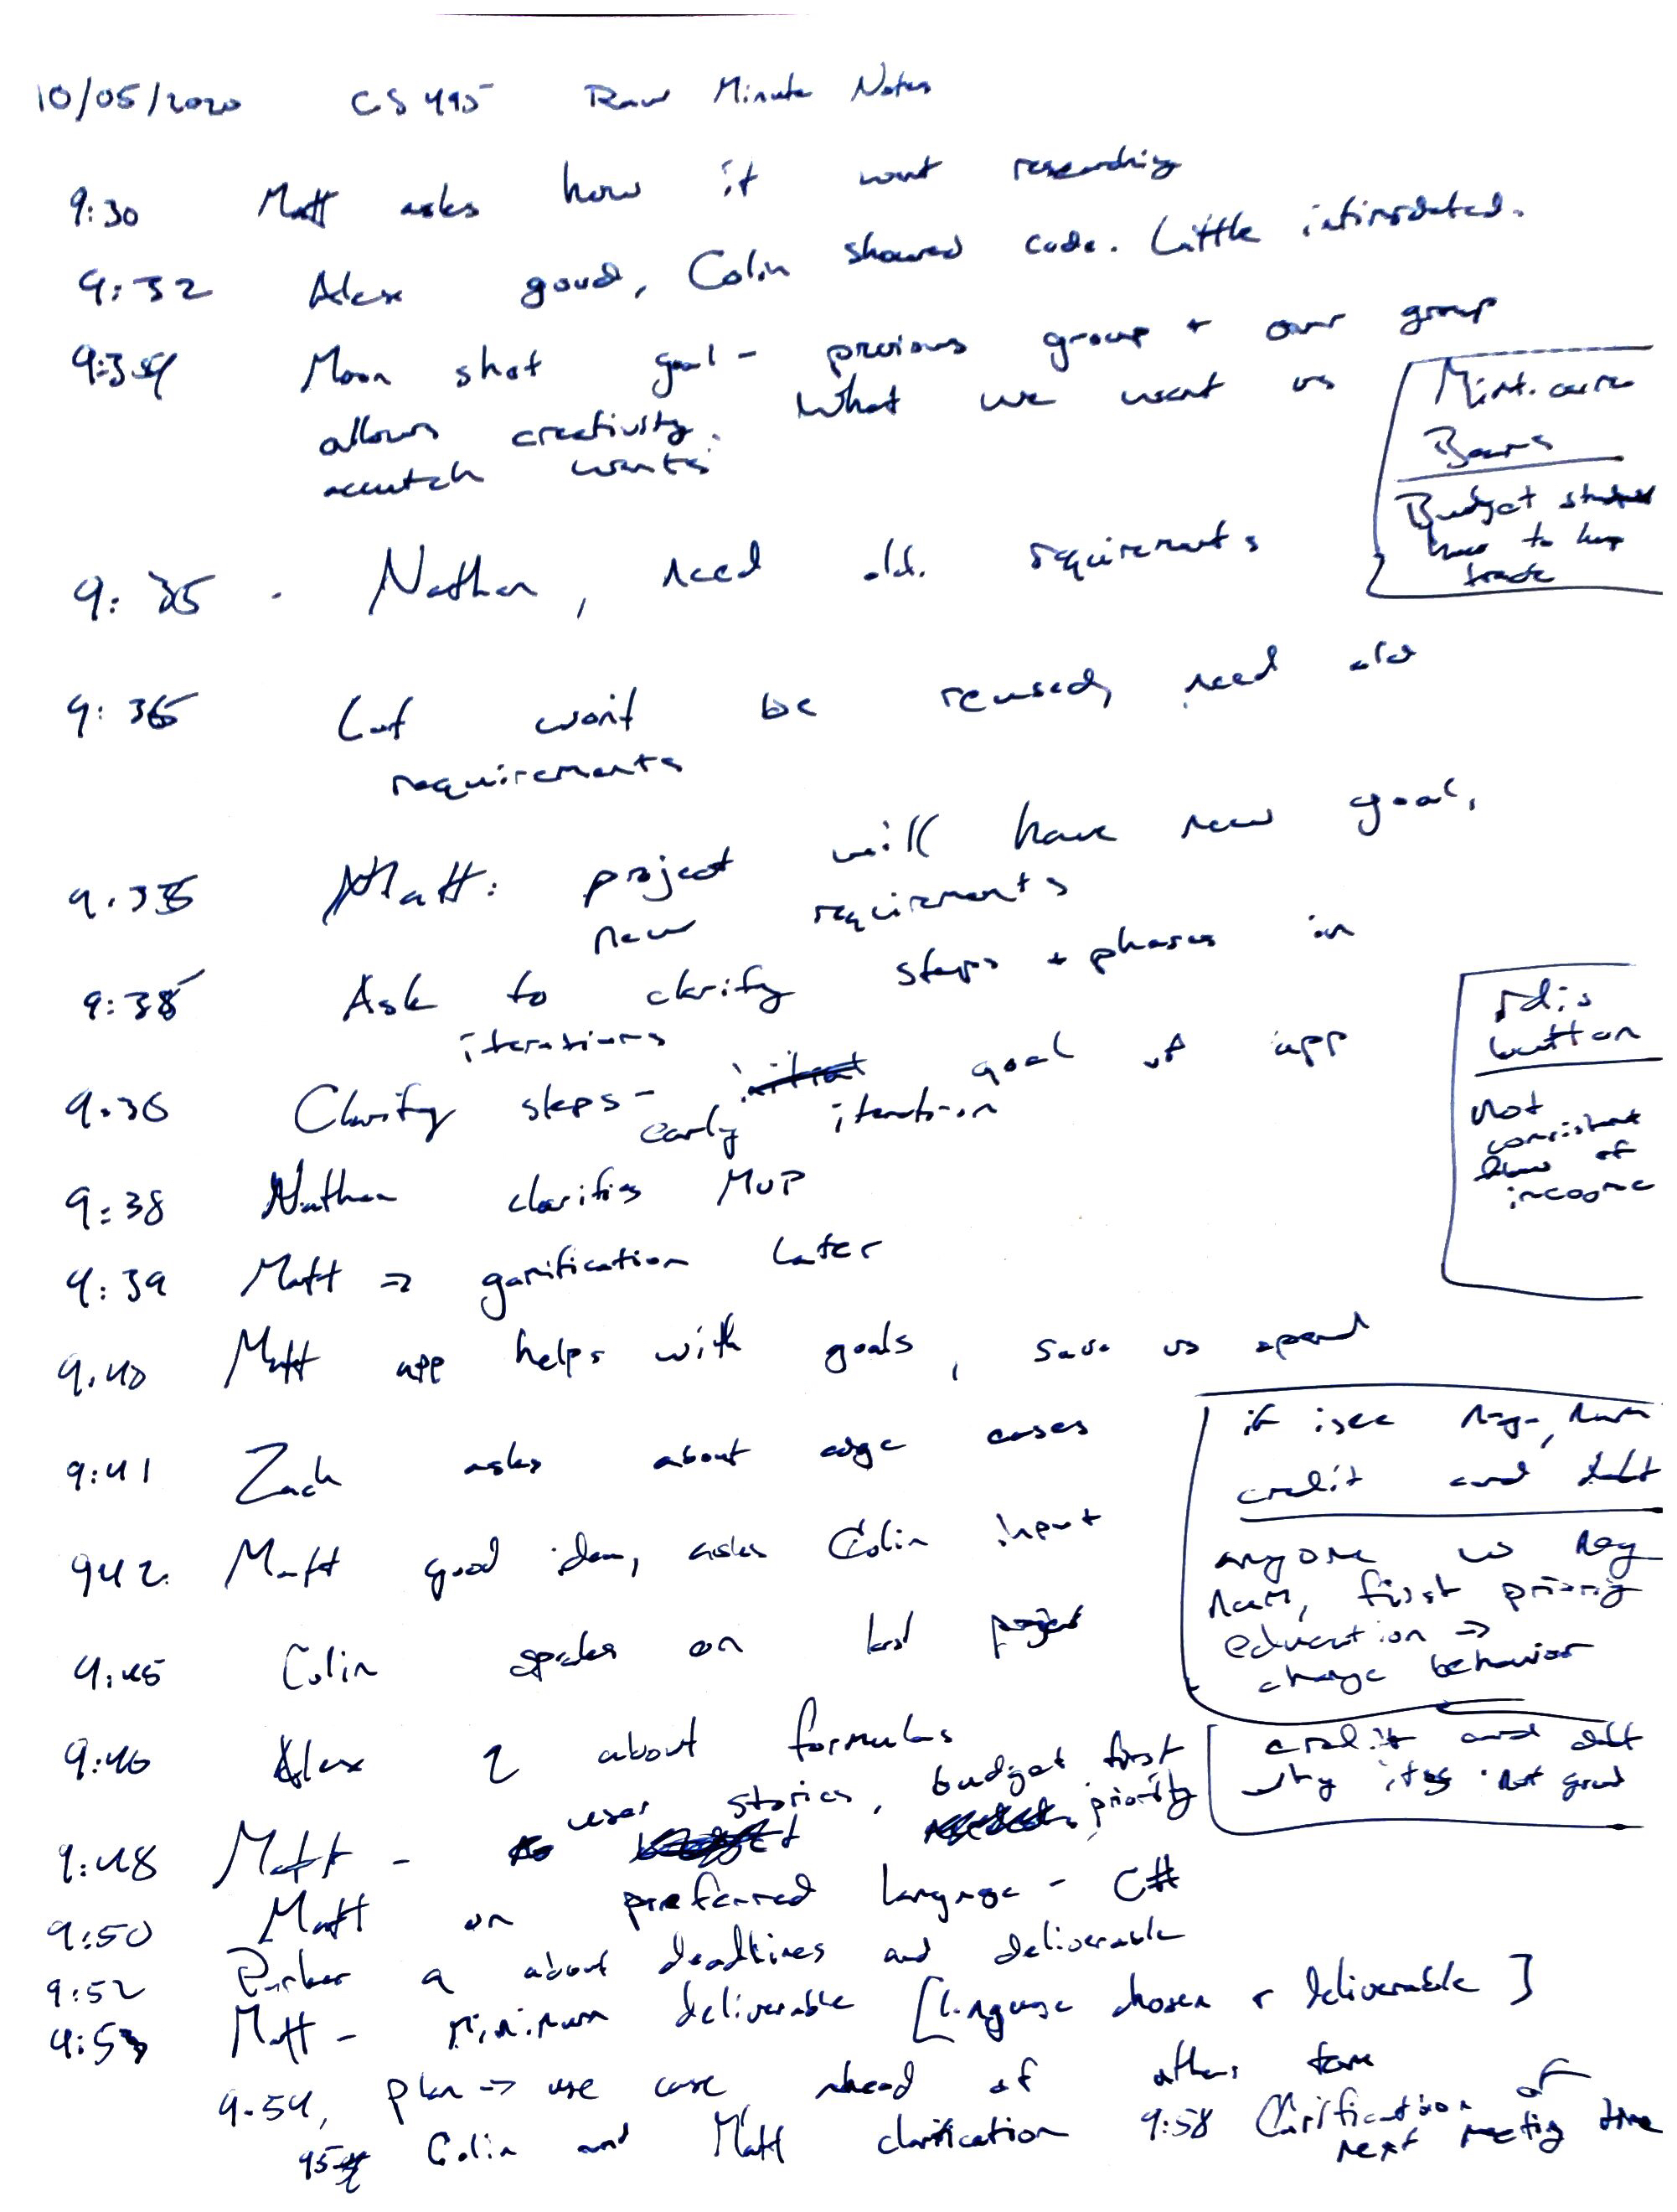 10/05/2020 CS 495 Raw Minute Notes
9:30 Matt asks how it went researching
9:32 Alex good, Colin showed code. Little intimidated.
9:34 Moon shot goal - previous group + our group
allows creativity. What we want vs
wants
Mint.
Budget
how to keep
track
9:35 - Nathan, need old requirements
9:36 won't be reused, need old
requirements
9:35 Matt: project will have new goal,
new requirements
9:38 Ask to clarify steps + phases in
iterations
9:36 Clarify steps - goal of app
early iteration
button
not
consistent
of
income
9:38 Nathan clarifies MVP
9:39 Matt => gamification later
9:40 Matt app helps with goals, save vs spend
9:41 Zach asks about edge cases
942. Matt good idea, asks Colin input
9:45 Colin speaks on last project
if isee
credit and debt
anyone w neg
num, first priority
education =>
change behavior
9:46 Alex Q about formulas
credit and debt
why its not good
9:48 Matt - user stories, budget first
priority
9:50 Matt on preferred language - C#
9:52 Parker q about deadlines and deliverable
9:53 Matt - minimum deliverable [language chosen + deliverable]
9:54, plan => use case ahead of other
Colin and Matt clarification 9:58 Clarification of
next meeting time